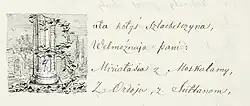 ała kotyś Szlachetczyna,
Wełmożnaja pani:
Miriałasia z Moskalamy,
Z Ordoju, z Sułtanom,